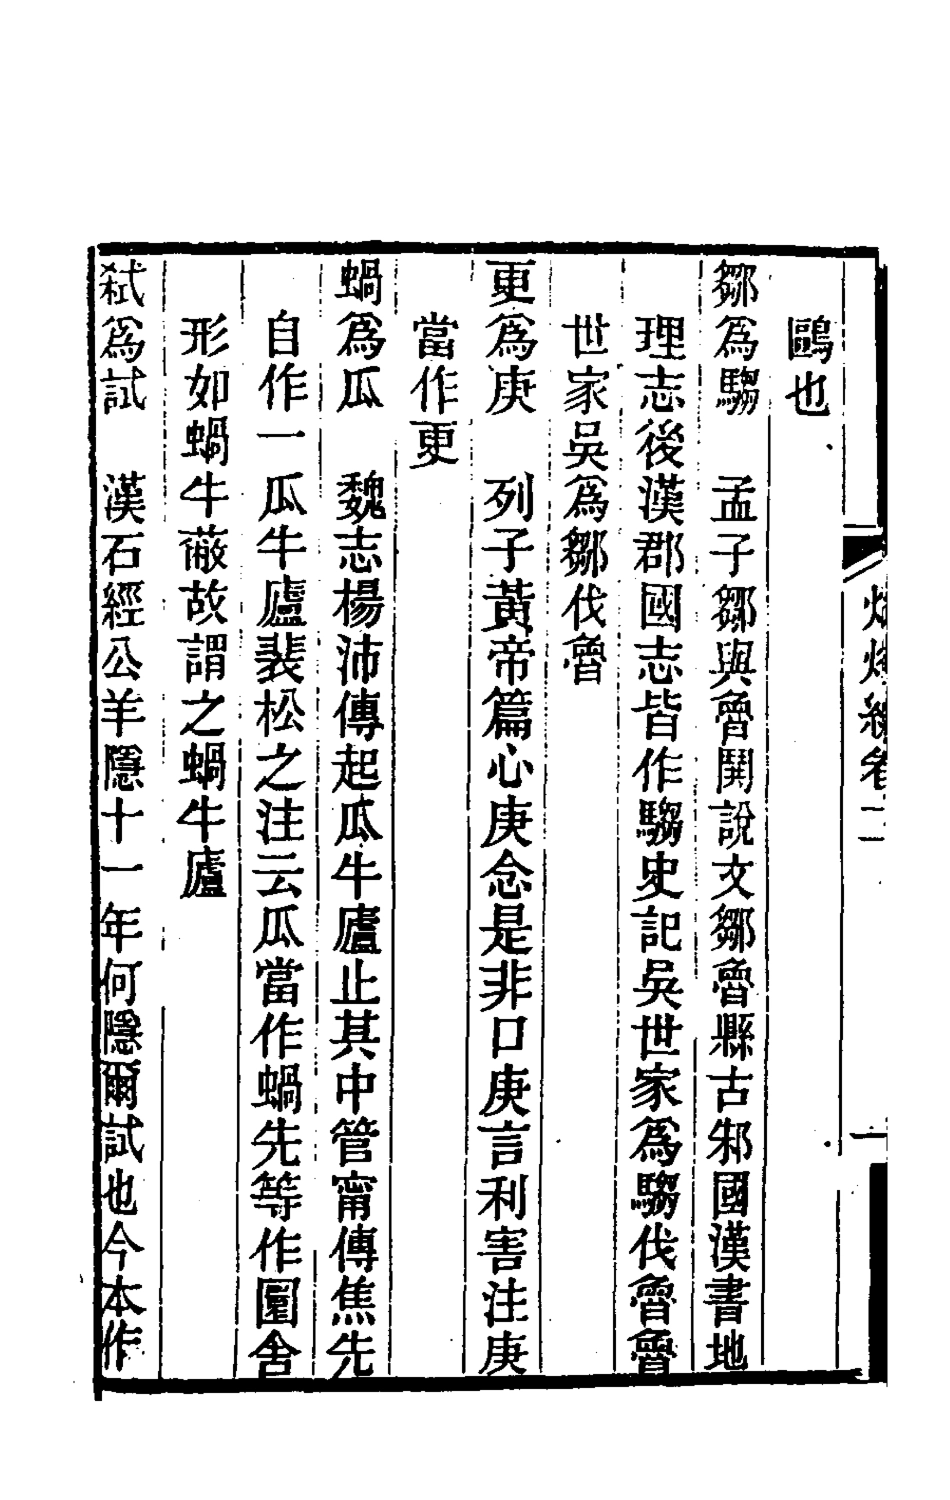 鷗也
鄒爲騶　孟子鄒與魯鬨說文鄒魯縣古邾國漢書地
理志後漢郡國志皆作騶史記吳世家爲騶伐魯魯
世家吳爲鄒伐魯
更爲庚　列子黃帝篇心庚念是非口庚言利害注庚
當作更
蝸爲瓜　魏志楊沛傳起瓜牛廬止其中管甯傳焦先
自作一瓜牛廬裴松之注云瓜當作蝸先等作圜舍
形如蝸牛蔽故謂之蝸牛廬
弒爲試　漢石經公羊隱十一年何隱爾試也今本作
卷二
一